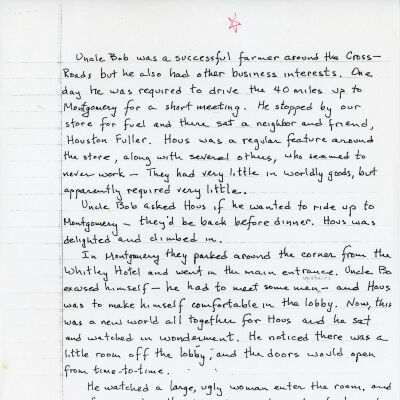 Uncle Bob was a successful farmer around the Cross-
Roads but he also had other business interests. One
day he was required to drive the 40 miles up to
Montgomery for a short meeting. He stopped by our
store for fuel and there sat a neighbor and friend,
Houston Fuller. Hous was a regular feature around
the store, along with several others, who seemed to
never work — They had very little in worldly goods, but
apparently required very little.
Uncle Bob asked Hous if he wanted to ride up to
Montgomery — they'd be back before dinner. Hous was
delighted and climbed in.
In Montgomery they parked around the corner from the
Whitley Hotel and went in the main entrance. Uncle Bo
excused himself — he had to meet some men upstairs — and Hous
was to make himself comfortable in the lobby. Now, this
was a new world all together for Hous and he sat
and watched in wonderment. He noticed there was a
little room off the lobby, and the doors would open
from time-to-time.
He watched a large, ugly woman enter the room, and